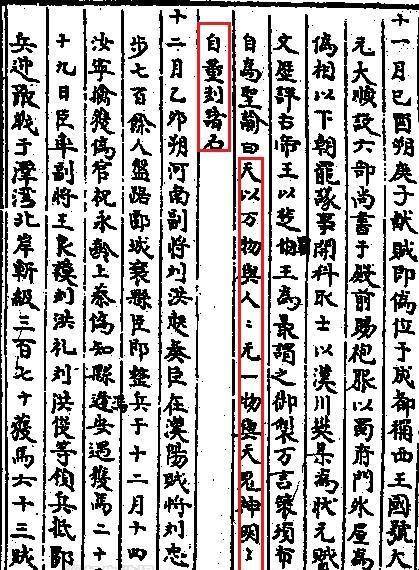 十一月己酉朔庚子献賊即偽位于成都稱西王國號大
元大順設六部尚書于殿前賜袍服以蜀府門氷屋為
偽相以下朝罷議事開科取士以漢川樊某為状元賊
文歷評古帝王以楚伯王為最謂之御製万言策頒布
自為聖諭曰天以万物與人〻无一物與天鬼神明〻
自量刻諸石
十二月乙卯朔河南副将刘洪起奏臣在漢陽賊将刘忠
步七百餘人盤踞郾城襄縣臣即整兵于十二月十四
汝寧擒獲偽官祝永齡上泰偽知縣馮安遇獲馬二十
十九日臣率副将王良謨刘洪礼刘洪俊等領兵抵郾
兵迎敵戰于潭湾北岸斬級三百七十獲馬六十三賊